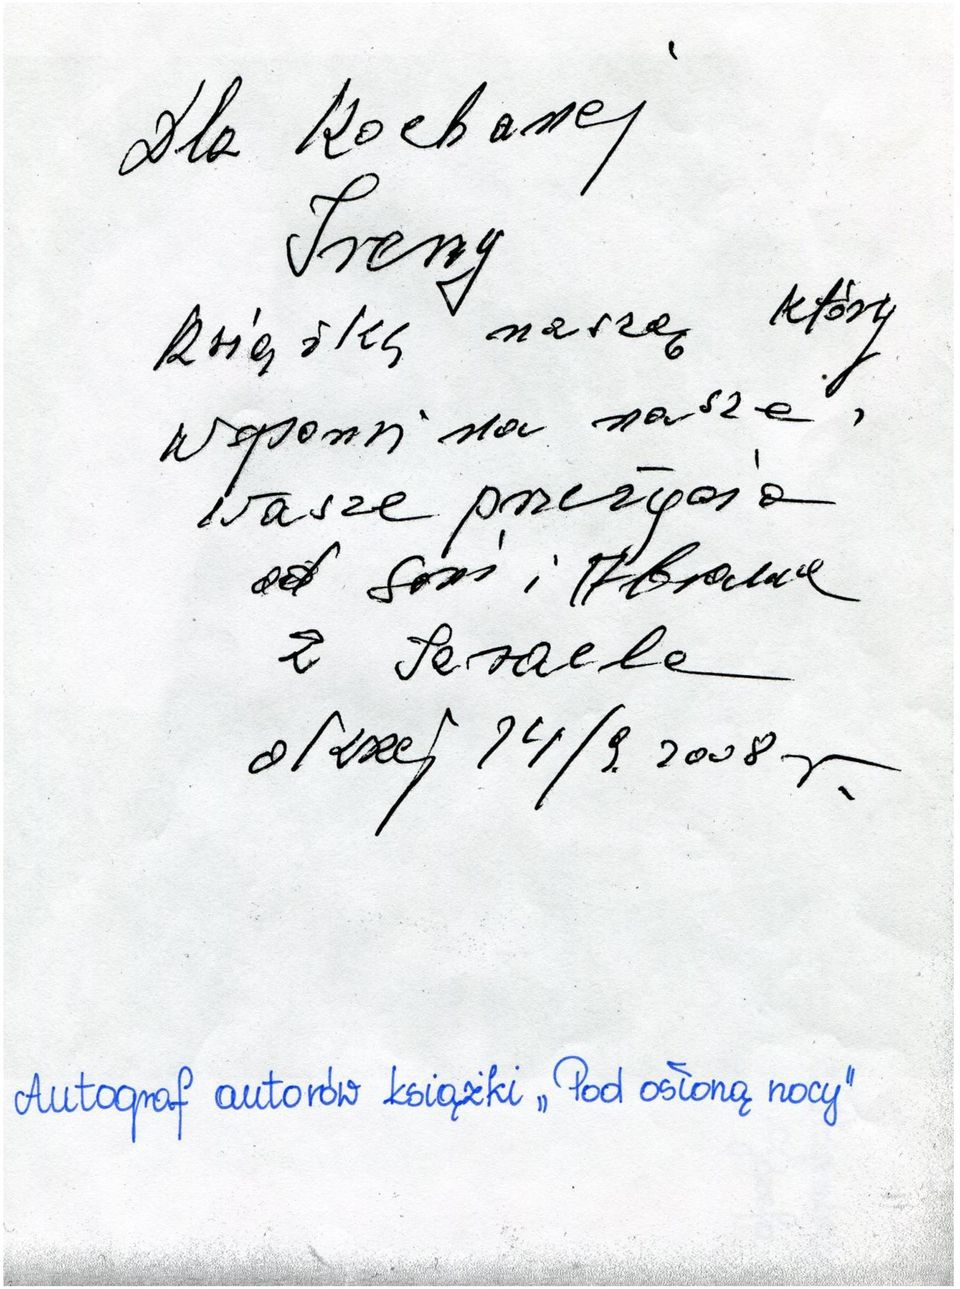 Dla Kochanej
Ireny
Książkę naszą który
wspomina nasze,
wasze przeżycia
od Soni i Abrama
z Israela
14/9. 2008 r.
Autograf autorów książki „Pod osłoną nocy"